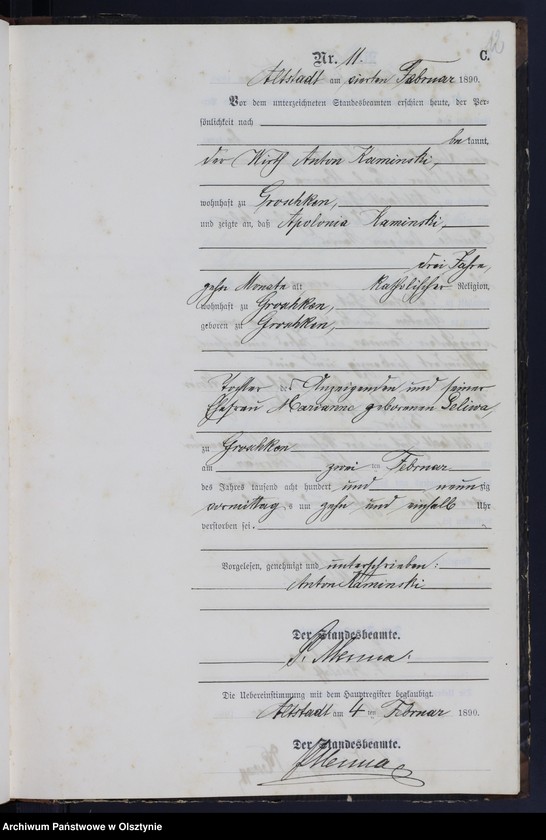 Nr. 11.
C.
Altstadt am vierten Februar 1890.
Vor dem unterzeichneten Standesbeamten erschien heute, der Per-
sönlichkeit nach
be kannt,
der Wirth Anton Kaminski,
wohnhaft zu Groshken,
und zeigte an, daß Apolonia Kaminski,
drei Jahre,
zehn Monate alt katholischer Religion,
wohnhaft zu Groshken,
geboren zu Groshken,
Tochter des Anzeigenden und seiner
Ehefrau Marianne geborenen Seliwa,
zu Groshken
am zwei ten Februar
des Jahres tausend acht hundert und neunzig
vormittags um zehn und einhalb Uhr
verstorben sei.
Vorgelesen, genehmigt und unterschrieben:
Anton Kaminski
Der Standesbeamte.
Menna.
Die Uebereinstimmung mit dem Hauptregister beglaubigt.
Altstadt am 4 ten Februar 1890.
Der Standesbeamte.
Menna
Archiwum Państwowe w Olsztynie